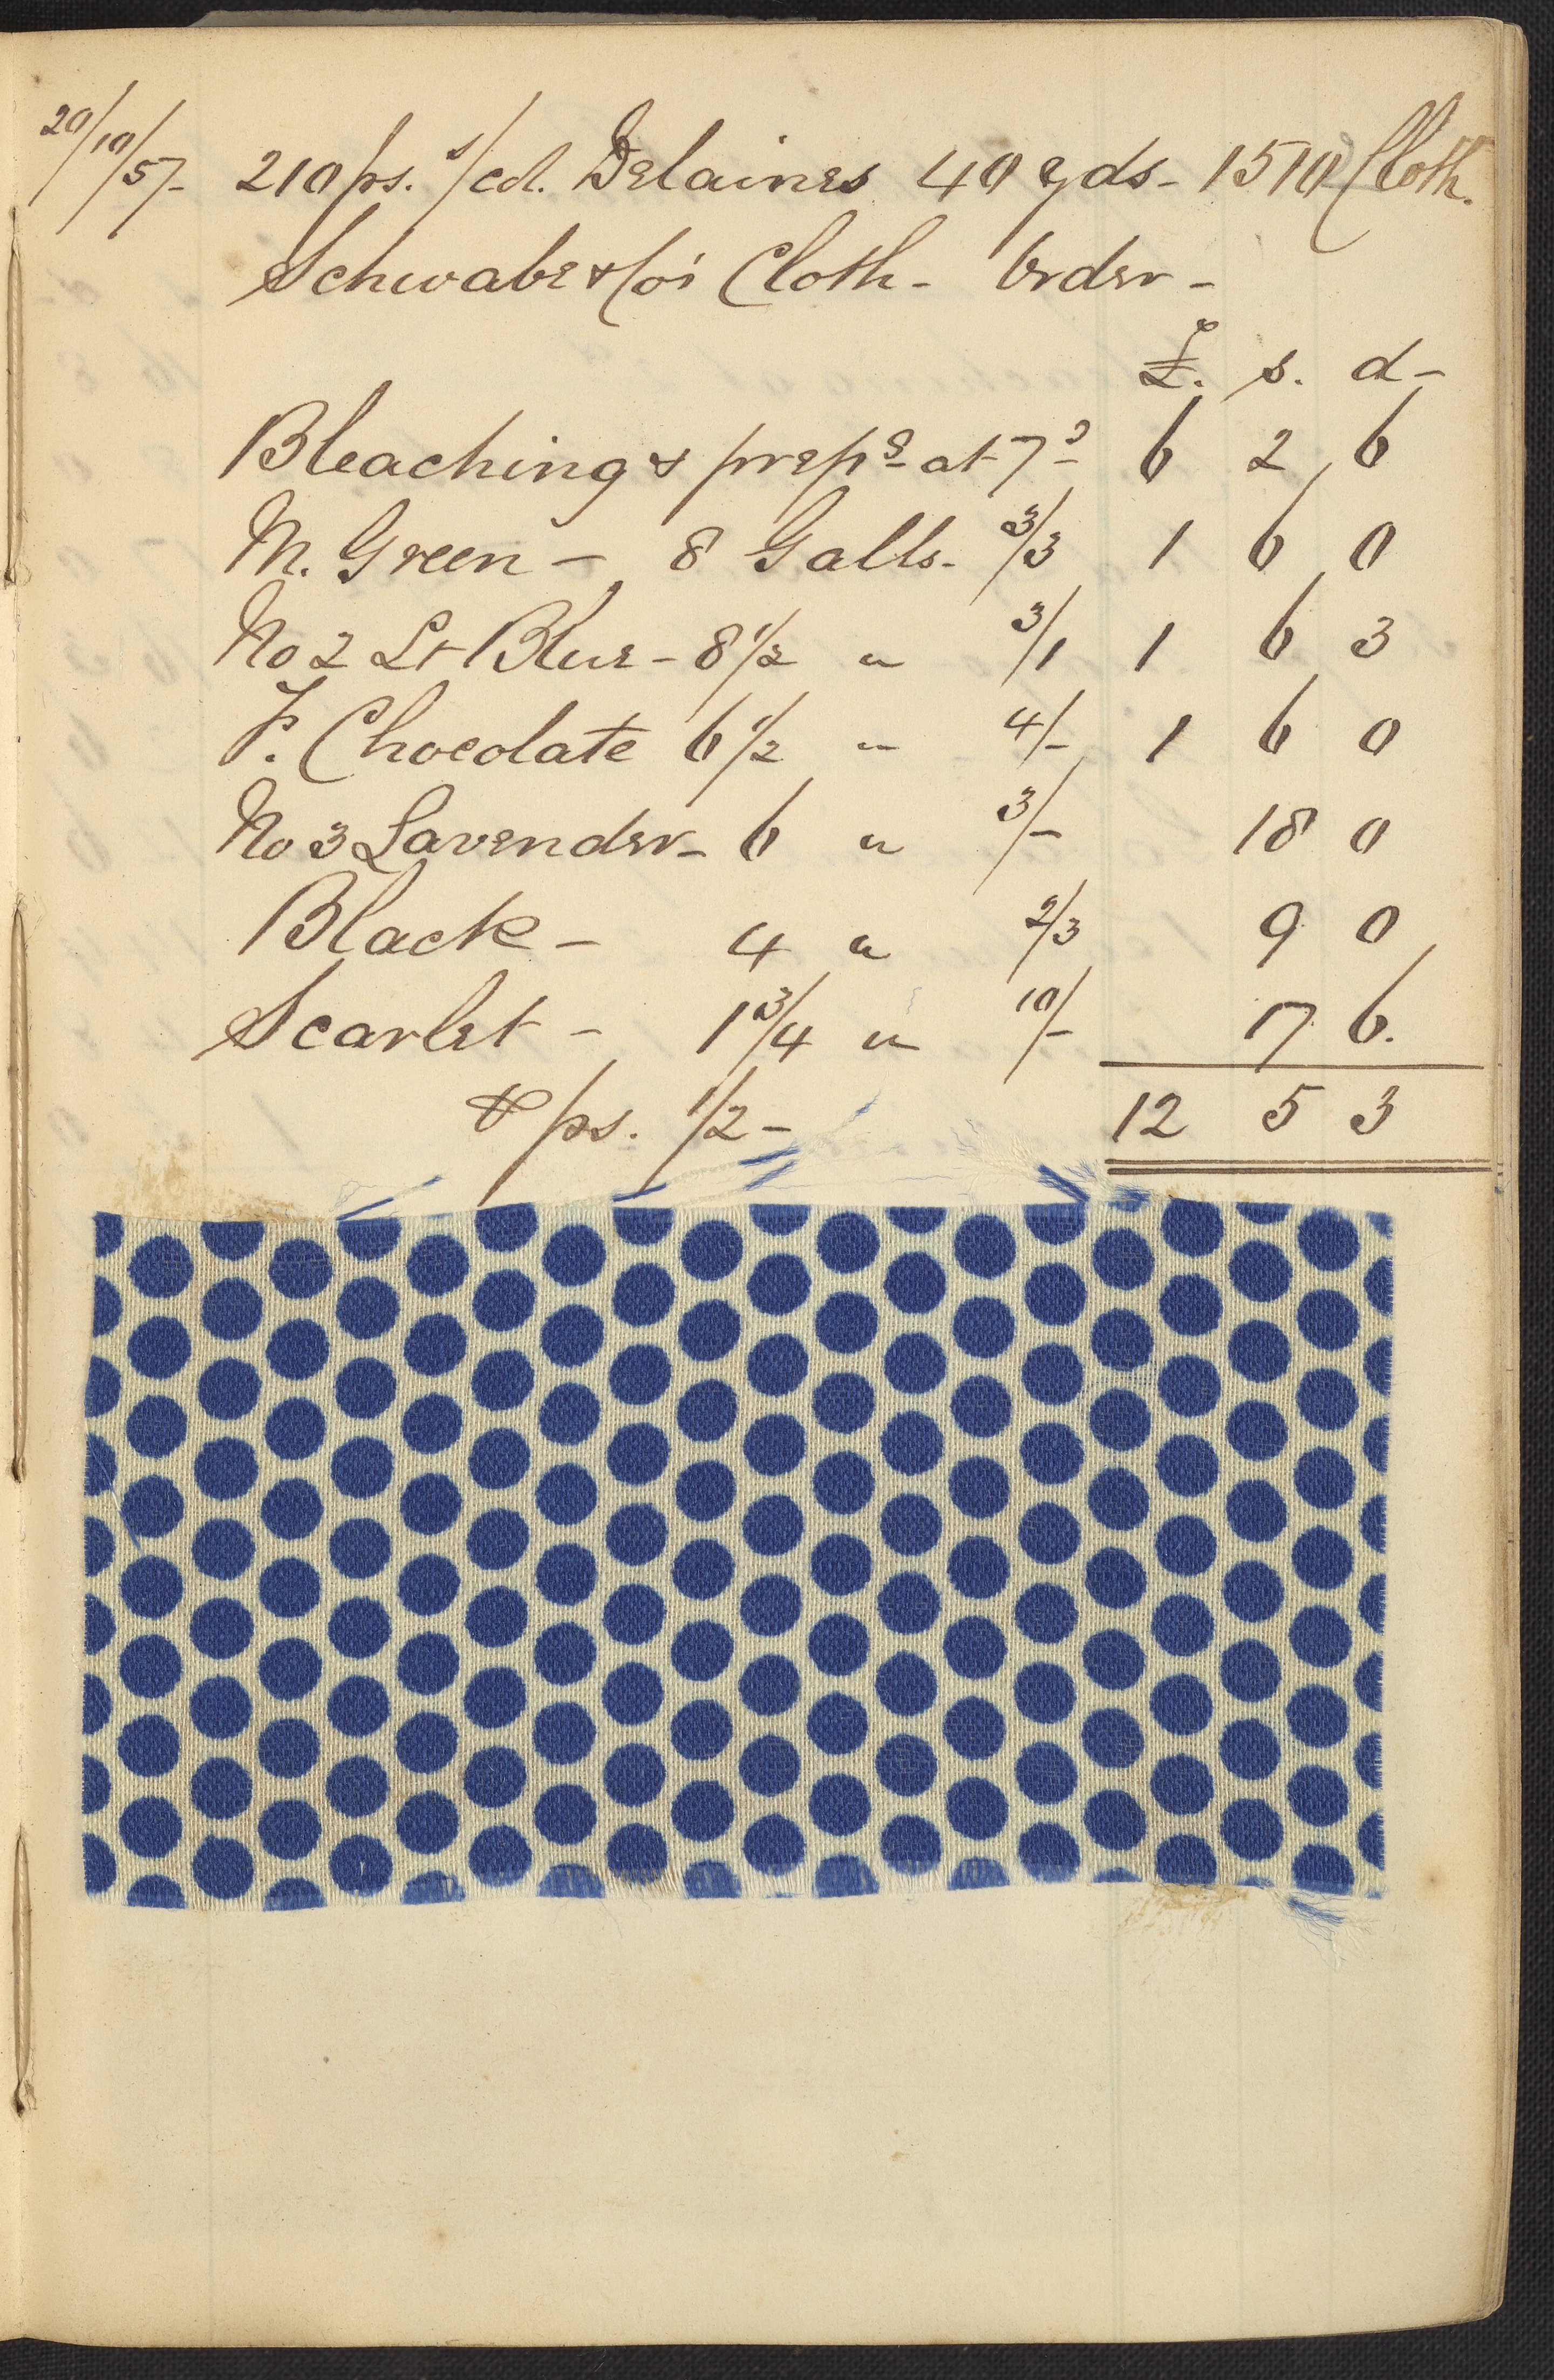 20/10/57- 210 ps. s/cd. Delaines 40 yds- 1510 Cloth.
Schwabe & Co's Cloth - Order -
£. s. d-
Bleaching & prepg at 7d 6 2 6
M. Green - 8 Galls. 3/3 1 6 0
No 2 Lt Blue - 8 1/2 " 3/1 1 6 3
F. Chocolate 6 1/2 " 4/- 1 6 0
No 3 Lavender - 6 " 3/- 18 0
Black - 4 " 2/3 9 0
Scarlet - 1 3/4 " 10/- 17 6.
ps. 1/2 - 12 5 3